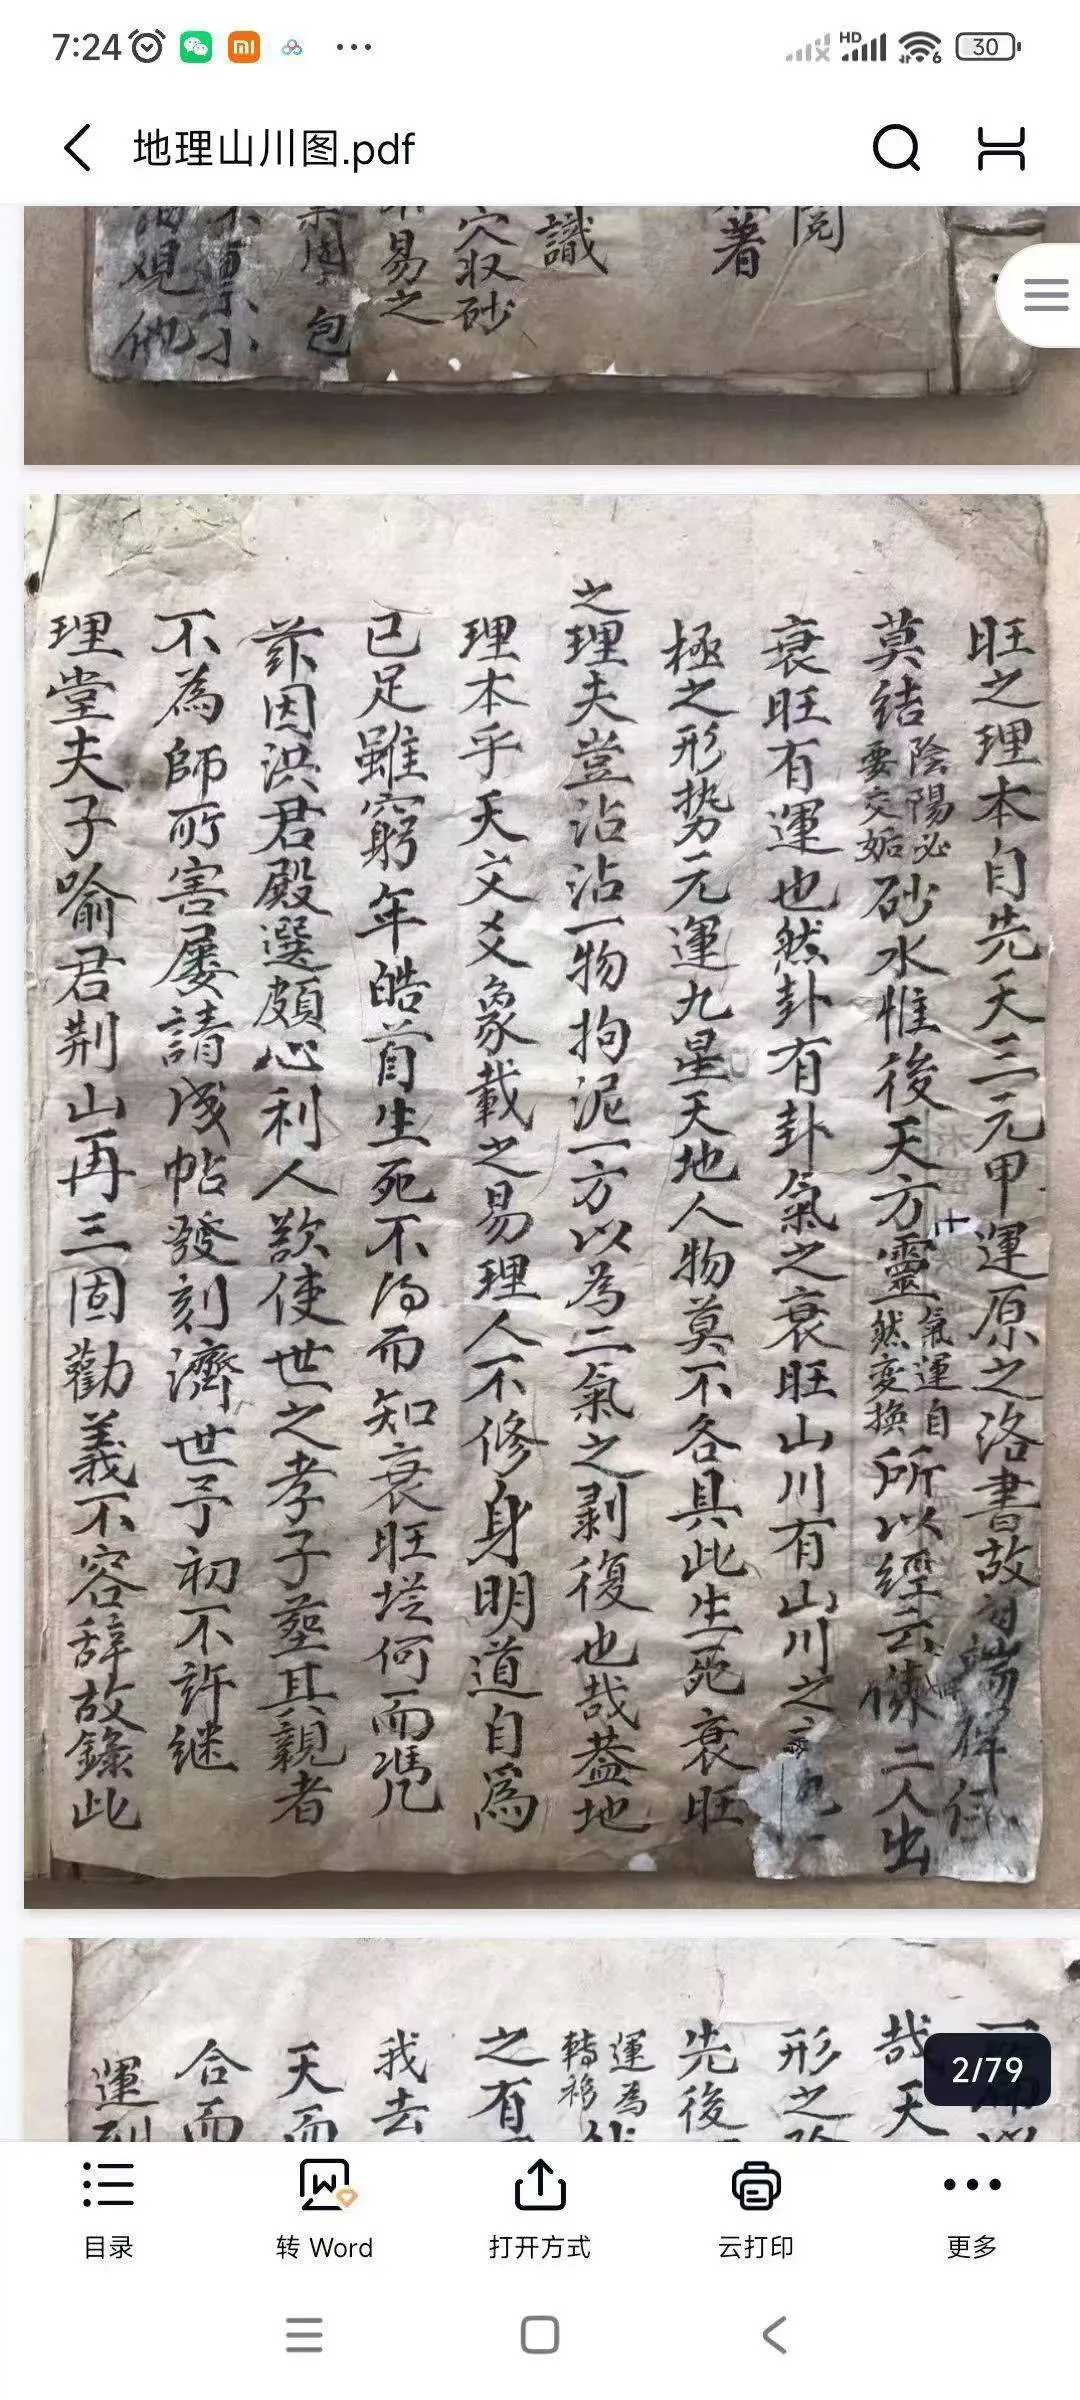 7:24
HD
6
30
地理山川图.pdf
閲
著
識
穴収砂
易之
包
小
觀他
旺之理本自先天三元甲運原之洛書故
莫結陰陽必要交姤砂水惟後天方靈氣運自然変換所以經云 二人出
衰旺有運也然卦有卦氣之衰旺山川有山川之
極之形势元運九星天地人物莫不各具此生死衰旺
之理夫豈沾沾一物拘泥一方以為二氣之剥復也哉葢地
理本乎天文爻象載之易理人不修身明道自爲
已足雖窮年皓首生死不得而知衰旺從何而凭
茲因洪君殿選頗心利人欲使世之孝子葬其親者
不為師所害屡請成帖發刻濟世予初不許継
理堂夫子喻君荆山再三固勸義不容辞故錄此
哉天
形之
先後
運為轉移
之有
我去
天而
合而
運
2/79
目录
转 Word
打开方式
云打印
更多